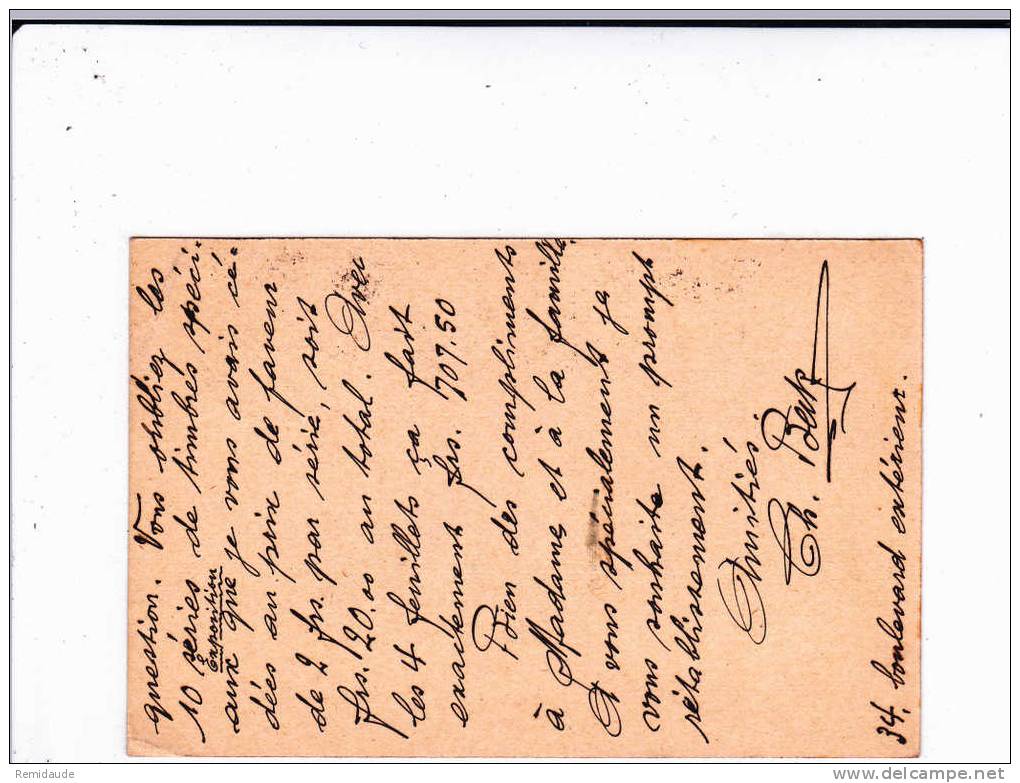 question. Vous oubliez les
10 séries de timbres spéci-
exposition
aux que je vous avais cé-
dées au prix de faveur
de 2 frs. par série, soit
frs. 20.00 au total. Avec
les 4 feuillets ça fait
exactement frs. 707.50
Bien des compliments
à Madame, et à la famille.
A vous spécialement je
vous souhaite un prompt
rétablissement.
Amitiés.
Ch.
34, boulevard extérieur.
Remidaude
delcampe.net